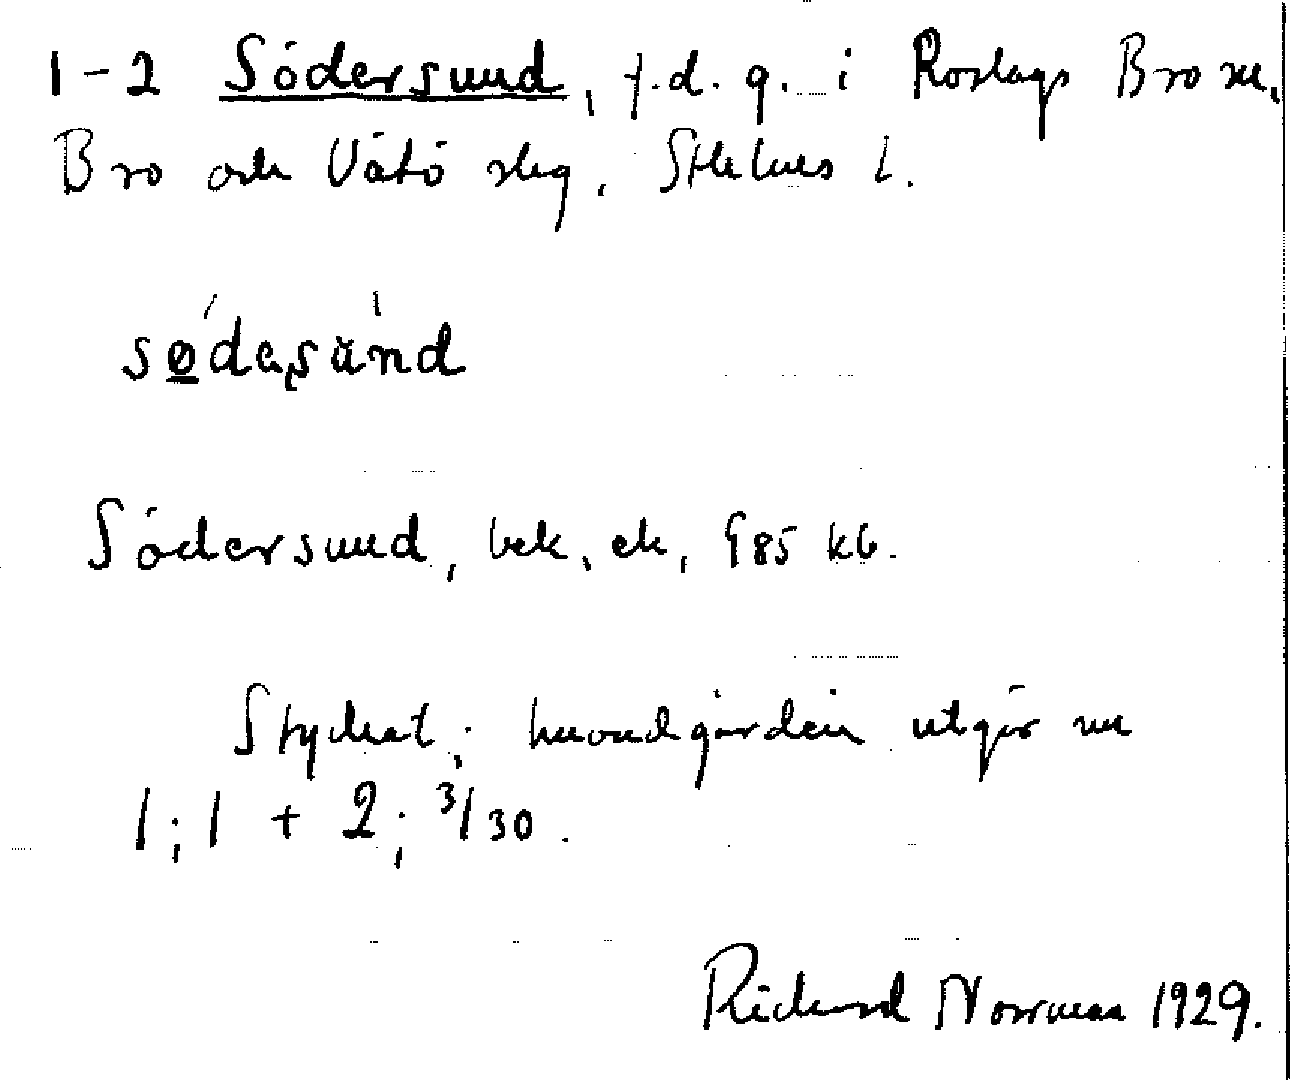 1-2 Södersund, f.d. g. i Roslags Bro sn,
Bro och Vätö sklg, Sthlms l.
sødasùnd
Södersund, bek, ek, §85 kb.
Styckat; huvudgården utgör nu
1;1 + 2; 3/30.
Rickard Norrman 1929.